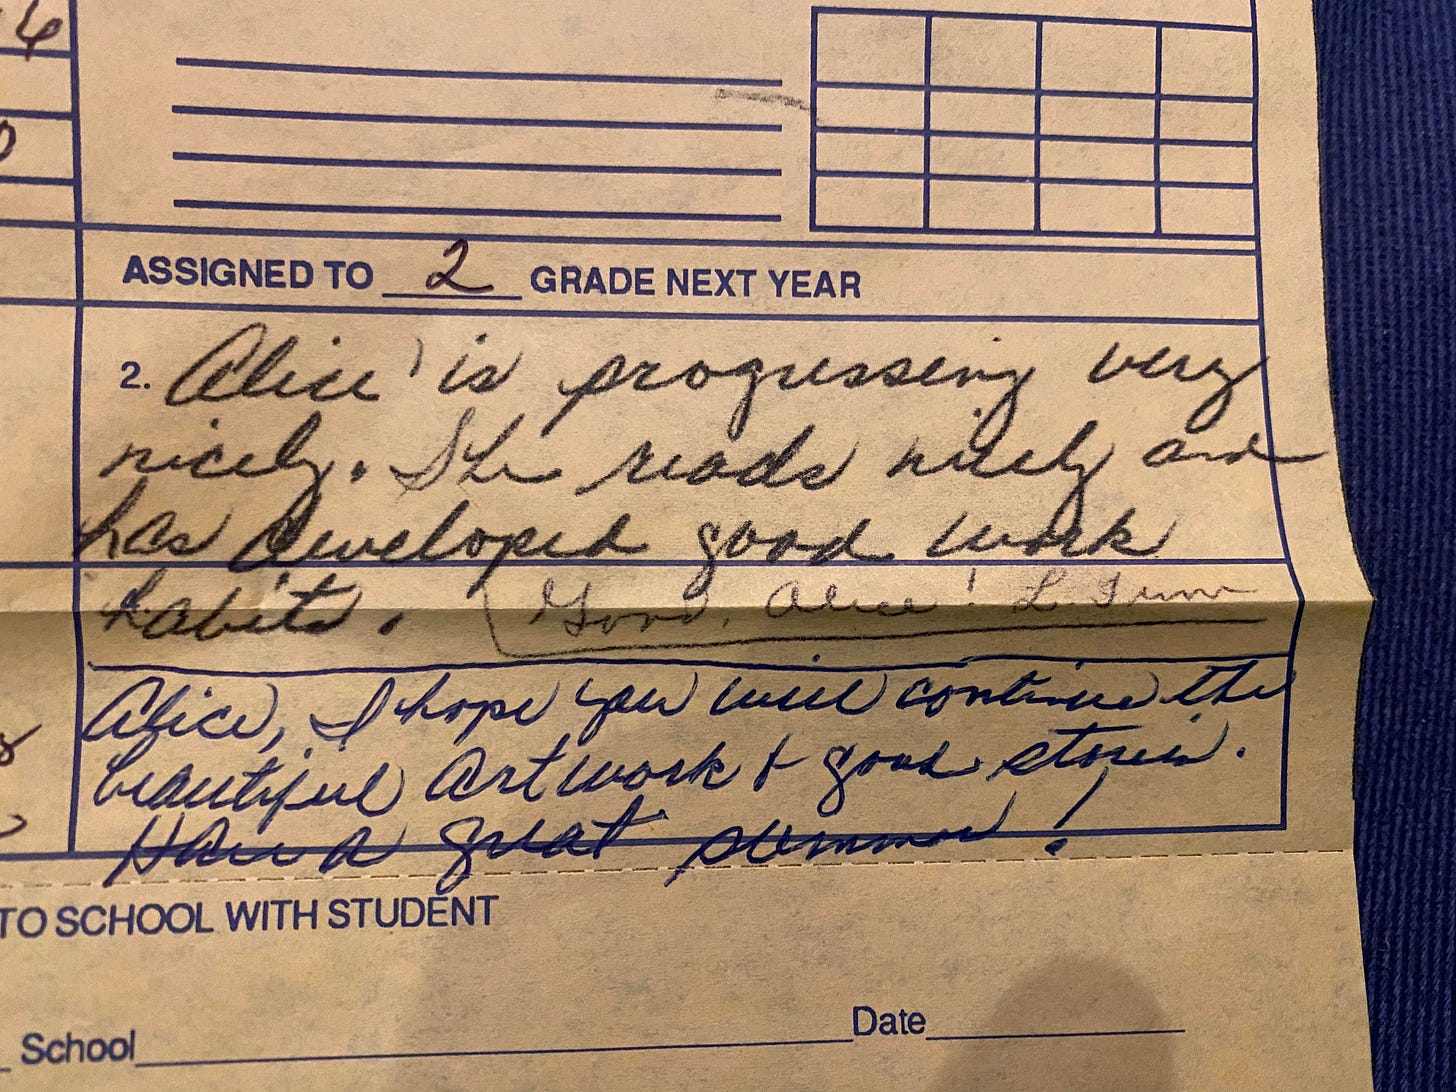 ASSIGNED TO 2 GRADE NEXT YEAR
2. Alice is progressing very
nicely. She reads nicely and
has developed good work
habits.
Good, Alice! L.
Alice, I hope you will continue the
beautiful artwork & good stories.
Have a great summer!
TO SCHOOL WITH STUDENT
School
Date